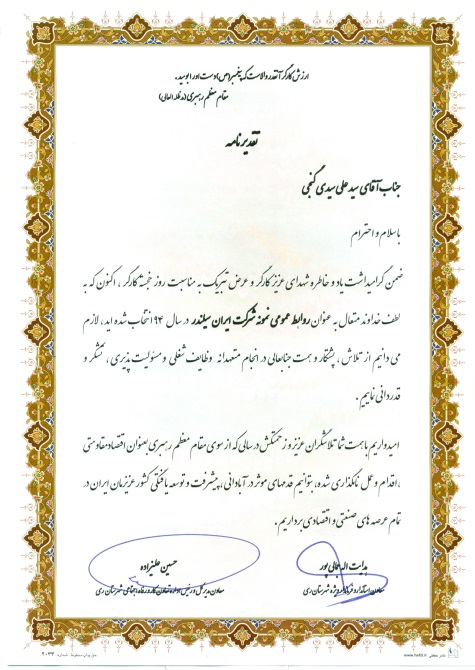 ارزش کارگر آنقدر والاست که پیغمبر(ص) دست او را بوسید.
مقام معظم رهبری (مدظله العالی)
تقدیرنامه
جناب آقای سید علی سیدی گنجی
با سلام و احترام
ضمن گرامیداشت یاد و خاطره شهدای عزیز کارگر و عرض تبریک به مناسبت روز خجسته کارگر ، اکنون که به
لطف خداوند متعال به عنوان روابط عمومی نمونه شرکت ایران سیلندر در سال ۹۴ انتخاب شده اید، لازم
می دانیم از تلاش ، پشتکار و همت جنابعالی در انجام متعهدانه وظایف شغلی و مسئولیت پذیری ، تشکر و
قدردانی نماییم .
امیدواریم با همت شما تلاشگران عزیز و زحمتکش در سالی که از سوی مقام معظم رهبری بعنوان اقتصاد مقاومتی
، اقدام و عمل نامگذاری شده، بتوانیم قدمهای موثر در آبادانی، پیشرفت و توسعه یافتگی کشور عزیزمان ایران در
تمام عرصه های صنعتی و اقتصادی برداریم .
هدایت اله جمالی پور
معاون استاندار و فرماندار ویژه شهرستان ری
حسین علیزاده
معاون مدیرکل و رئیس اداره تعاون کار و رفاه اجتماعی شهرستان ری
۲۰۳۳